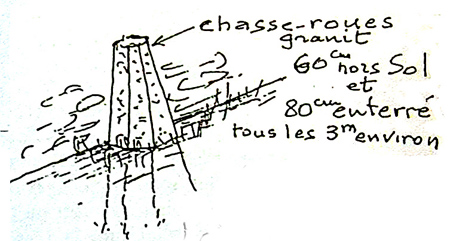 chasse-roues
granit
60cm hors Sol
et
80cm enterré
tous les 3m environ